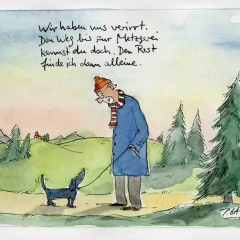 Wir haben uns verirrt.
Den Weg bis zur Metzgerei
kennst du doch. Den Rest
finde ich dann alleine.